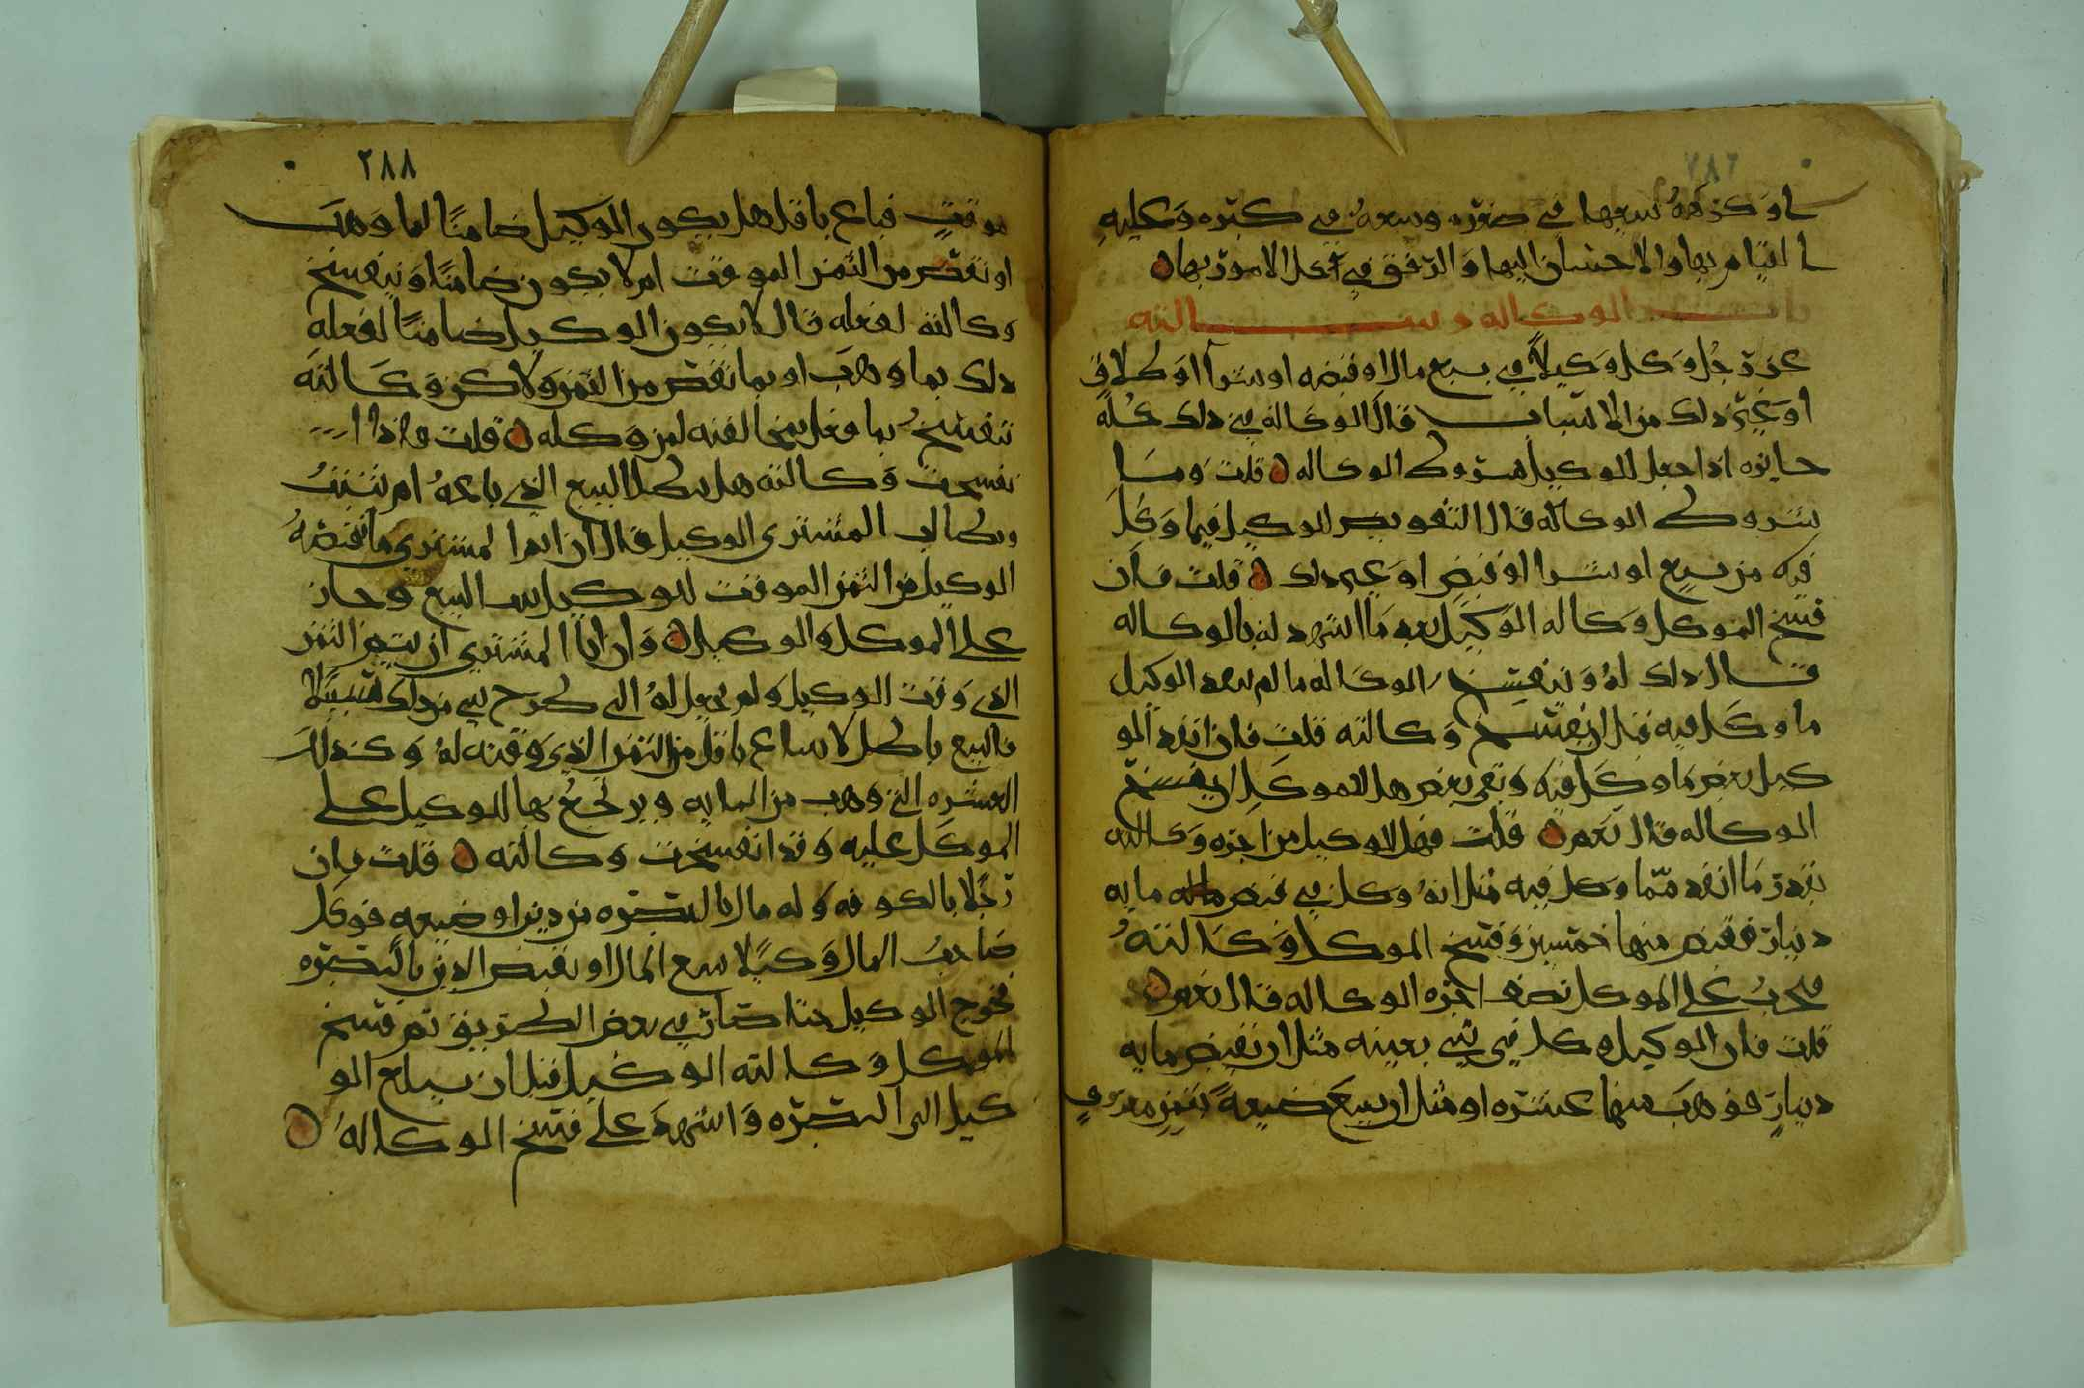 ٢٨٦
او كرهه سعيها في صغره وسعه في كبره وعليه
القيام بها والاحسان اليها والرفق في كل الامور بها
باب الوكاله وسالته
عن رجل وكل وكيلا في بيع مال او قبضه او شرا او طلاق
او غير ذلك من الاسباب قال الوكاله في ذلك كله
جايزه اذا جعل للوكيل شروط الوكاله قلت وما
شروط الوكاله قال التفويض للوكيل فيما وكل
فيه من بيع او شرا او قبض او غير ذلك قلت فان
فسخ الموكل وكاله الوكيل بعد ما اشهد له بالوكاله
قال ذلك له وتنفسخ الوكاله ما لم ينفد الوكيل
ما وكل فيه قبل ان يفسخ وكالته قلت فان انفد الو
كيل بعض ما وكل فيه وبقى بعض هل للموكل ان يفسخ
الوكاله قال نعم قلت فهل للوكيل من اجره وكالته
بقدر ما انفد مما وكل فيه مثل انه وكل في قبض مايه
دينار فقبض منها خمسين وفسخ الموكل وكالته
يجب على الموكل نصف اجره الوكاله قال نعم
قلت فان الوكيل وكل في شي بعينه مثل ان يقبض مايه
دينار فوهب منها عشره او مثل ان يبيع ضيعة بثمن معروف
٢٨٨
موقت فباع باقل هل يكون الوكيل ضامنا لما وهب
او نقص من الثمن الموقت ام لا يكون ضامنا وتنفسخ
وكالته لفعله قال لا يكون الوكيل ضامنا لفعله
ذلك بما وهب او بما نقص من الثمن ولاكن وكالته
تنفسخ بما فعل بمخالفته لمن وكله قلت واذا
نفسخت وكالته هل يبطل البيع الذي باعه ام يثبت
ويطالب المشتري الوكيل قال ان المشتري ما نقصه
الوكيل من الثمن الموقت للوكيل البيع وجاز
على الموكل والوكيل وان ابا المشتري ان يتم الثمن
الذي وقت الوكيل ولم يجعل له الى طرح شي من ذلك سبيلا
فالبيع باطل لا يباع باقل من الثمن الذي وقته له وكذلك
العشره التي وهب من المايه ويرجع بها الوكيل على
الموكل عليه وقد انفسخت وكالته قلت فان
رجلا بالكوفه وله مال بالبصره من دين او ضيعه فوكل
صاحب المال وكيلا لبيع المال او يقبض الدين بالبصره
فخرج الوكيل حتا صار في بعض الطريق ثم فسخ
الموكل وكالته الوكيل قبل ان يبلغ الو
كيل الى البصره واشهد على فسخ الوكاله